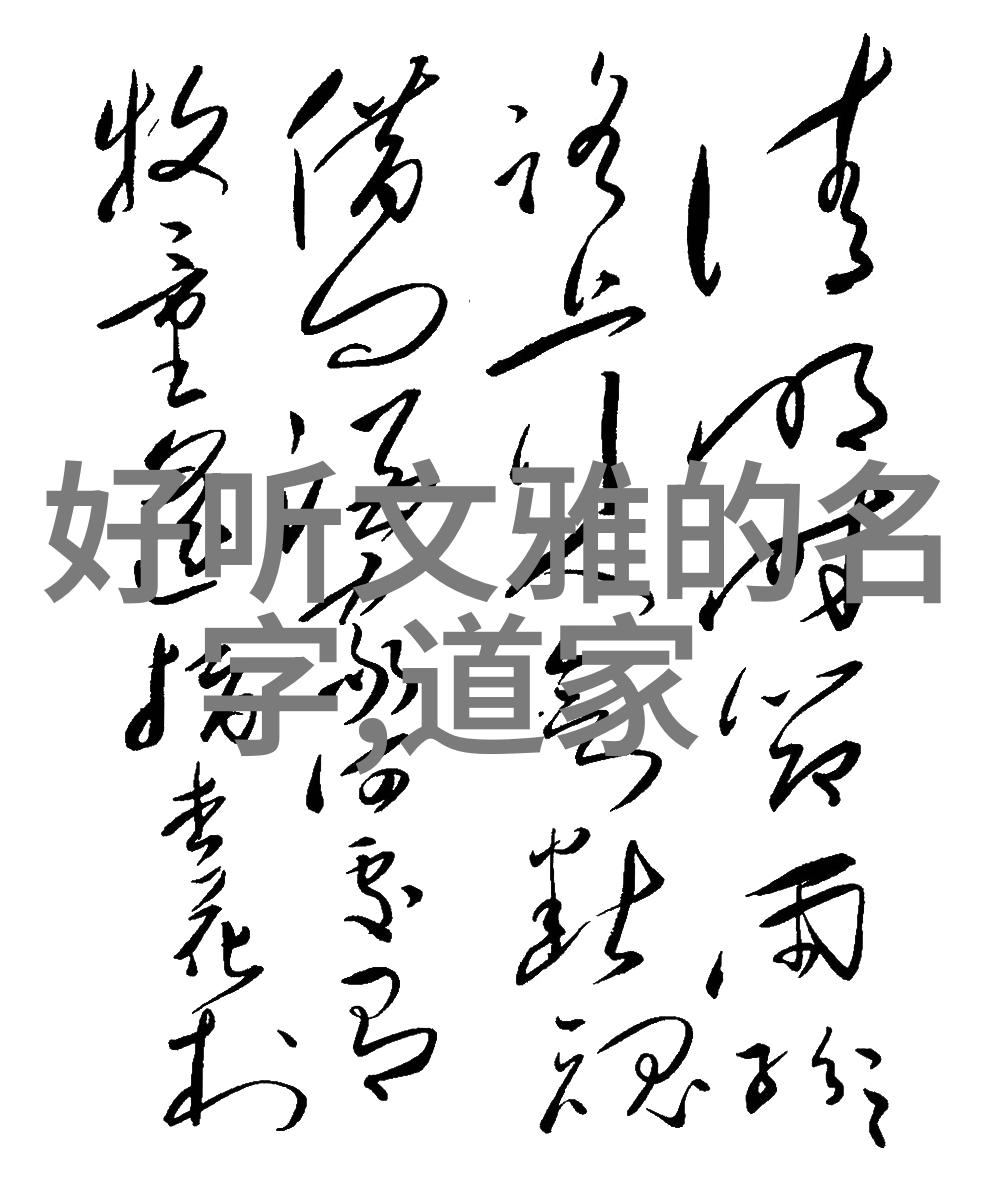 好听文雅的名
字,道家
清明時節雨紛紛
路上行人欲斷魂
借问酒家何處有
牧童遙指杏花村